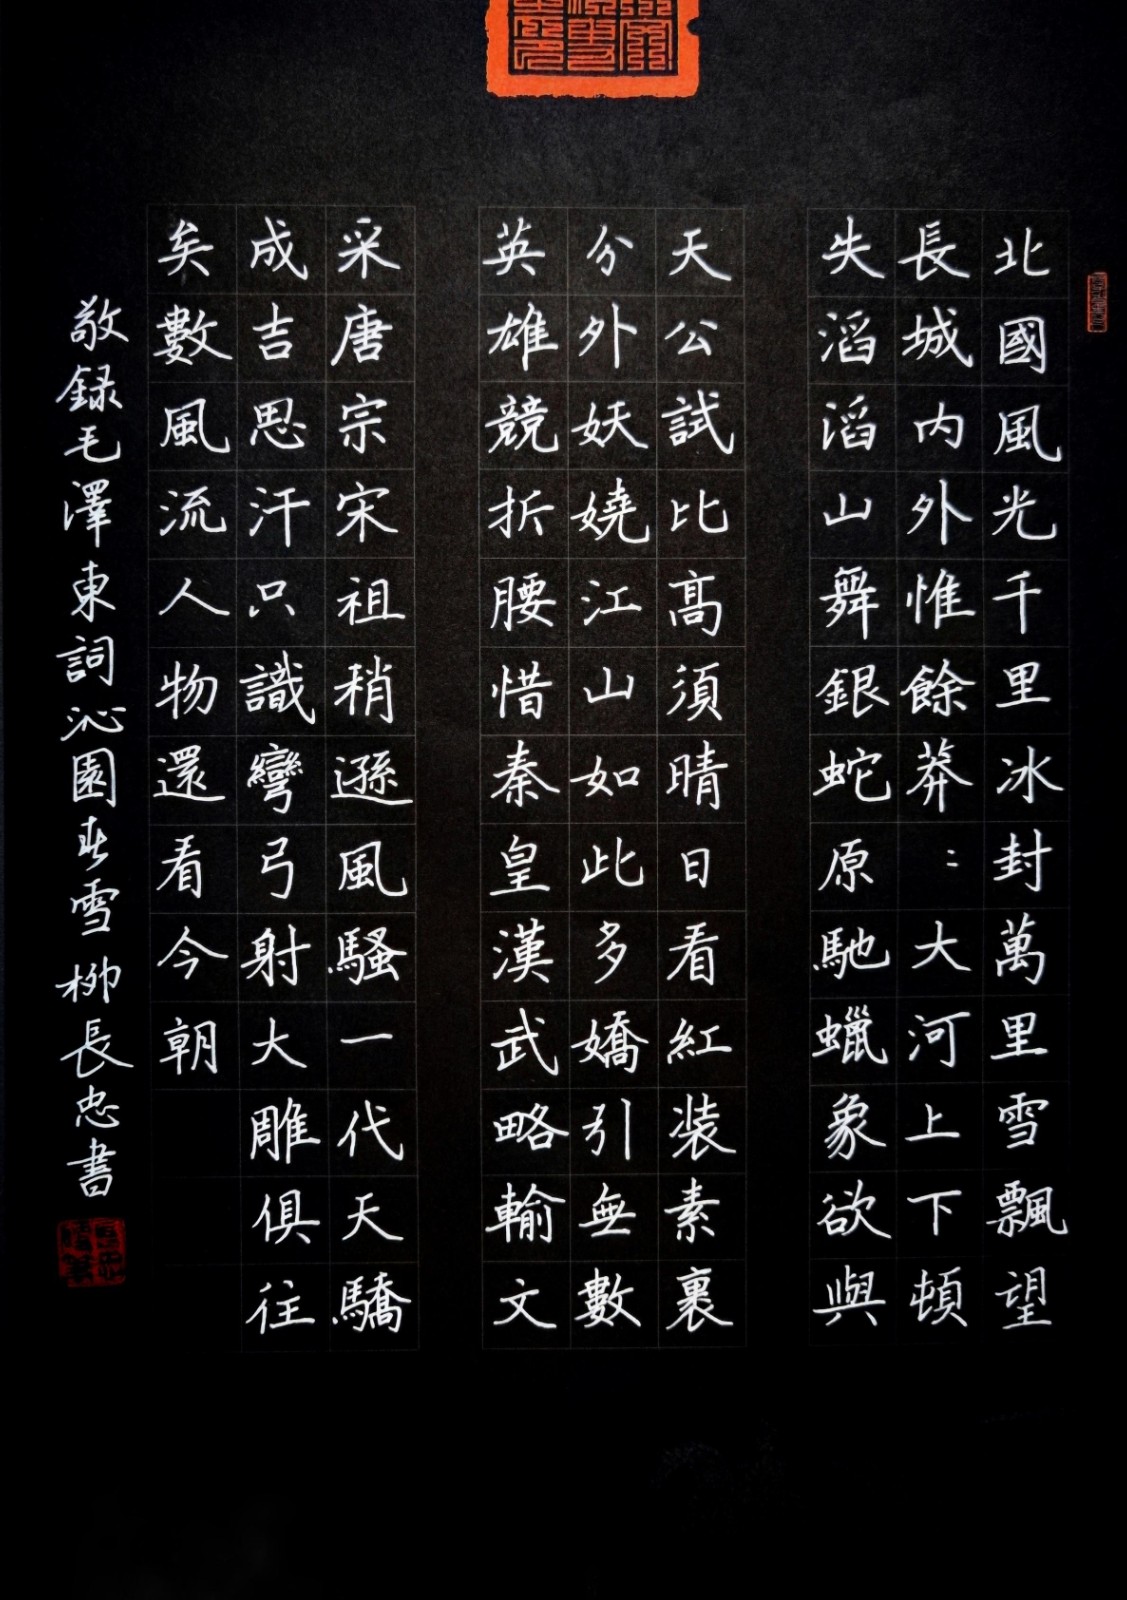 北國風光千里冰封萬里雪飄望
長城內外惟餘莽〻大河上下頓
失滔滔山舞銀蛇原馳蠟象欲與
天公試比高須晴日看紅裝素裹
分外妖嬈江山如此多嬌引無數
英雄競折腰惜秦皇漢武略輸文
采唐宗宋祖稍遜風騷一代天驕
成吉思汗只識彎弓射大雕俱往
矣數風流人物還看今朝
敬録毛澤東詞沁園春雪 柳長忠書